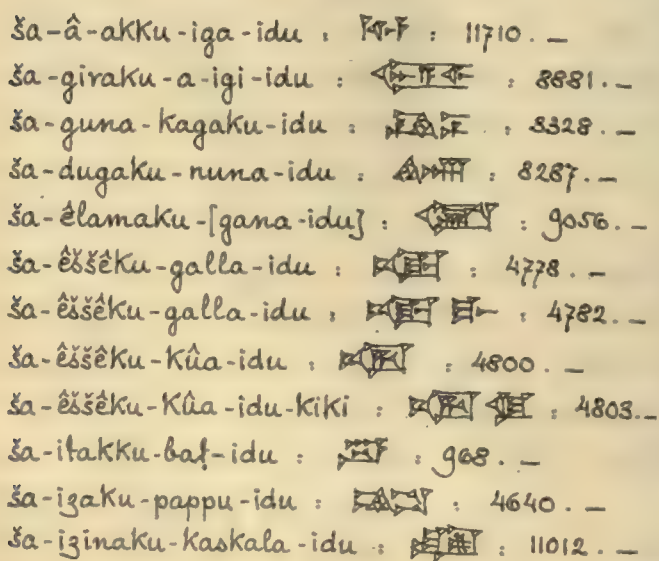 ša-â-akku-iga-idu : : 11710. —
ša-giraku-a-igi-idu : : 8881. —
ša-guna-kagaku-idu : : 8328. —
ša-dugaku-nuna-idu : : 8287. —
ša-êlamaku-[gana-idu] : : 9056. —
ša-êššêku-galla-idu : : 4778. —
ša-êššêku-galla-idu : : 4782. —
ša-êššêku-kûa-idu : : 4800. —
ša-êššêku-kûa-idu-kiki : : 4803. —
ša-itakku-baṭ-idu : : 968. —
ša-izaku-pappu-idu : : 4640. —
ša-izinaku-kaskala-idu : : 11012. —